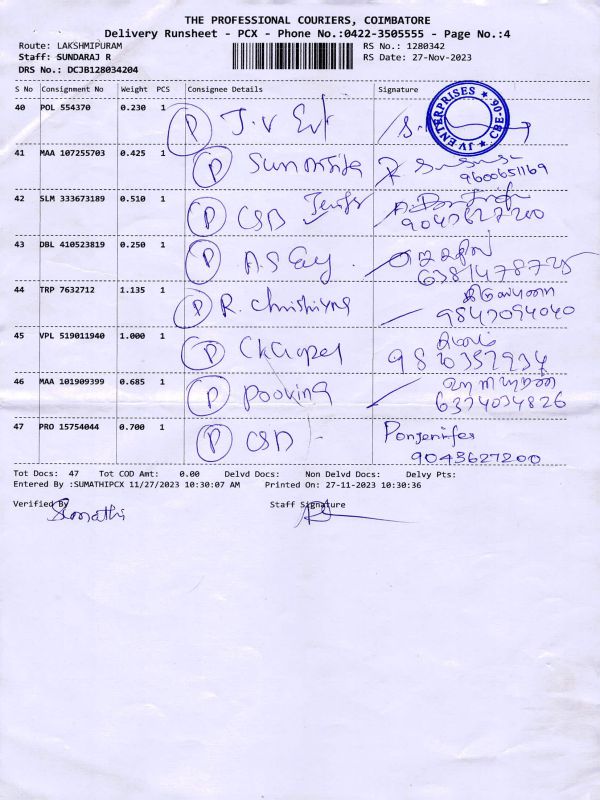 THE PROFESSIONAL COURIERS, COIMBATORE
Delivery Runsheet - PCX - Phone No.:0422-3505555 - Page No.:4
Route: LAKSHMIPURAM RS No.: 1280342
Staff: SUNDARAJ R RS Date: 27-Nov-2023
DRS No.: DCJB128034204
S No Consignment No Weight PCS Consignee Details Signature
40 POL 554370 0.230 1 P J.V Ent
JV ENTERPRISES ★ CBE-06 ★
41 MAA 107255703 0.425 1 P
9600651169
42 SLM 333673189 0.510 1 P CSD
9043627200
43 DBL 410523819 0.250 1 P A.S
44 TRP 7632712 1.135 1 P R.
9843094040
45 VPL 519011940 1.000 1 P
46 MAA 101909399 0.685 1 P Pooking
6374034826
47 PRO 15754044 0.700 1 P CSD - Ponjenifer
9043627200
Tot Docs: 47 Tot COD Amt: 0.00 Delvd Docs: Non Delvd Docs: Delvy Pts:
Entered By :SUMATHIPCX 11/27/2023 10:30:07 AM Printed On: 27-11-2023 10:30:36
Verified By Staff Signature
Sumathi